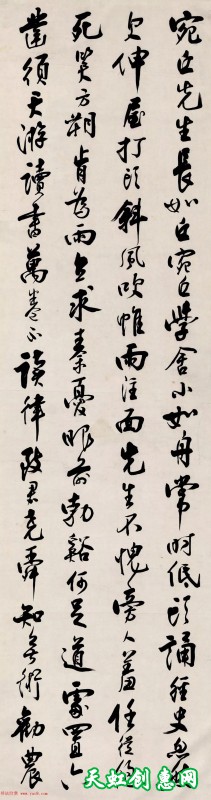 宛丘先生長如丘宛丘學舍小如舟常時低頭誦經史忽然
欠伸屋打頭斜風吹帷雨注面先生不愧旁人羞任從飽
死笑方朔肯為雨立求秦優眼前勃谿何足道處置六
鑿須天游讀書萬卷不讀律致君堯舜知無術勸農
天虹创意网